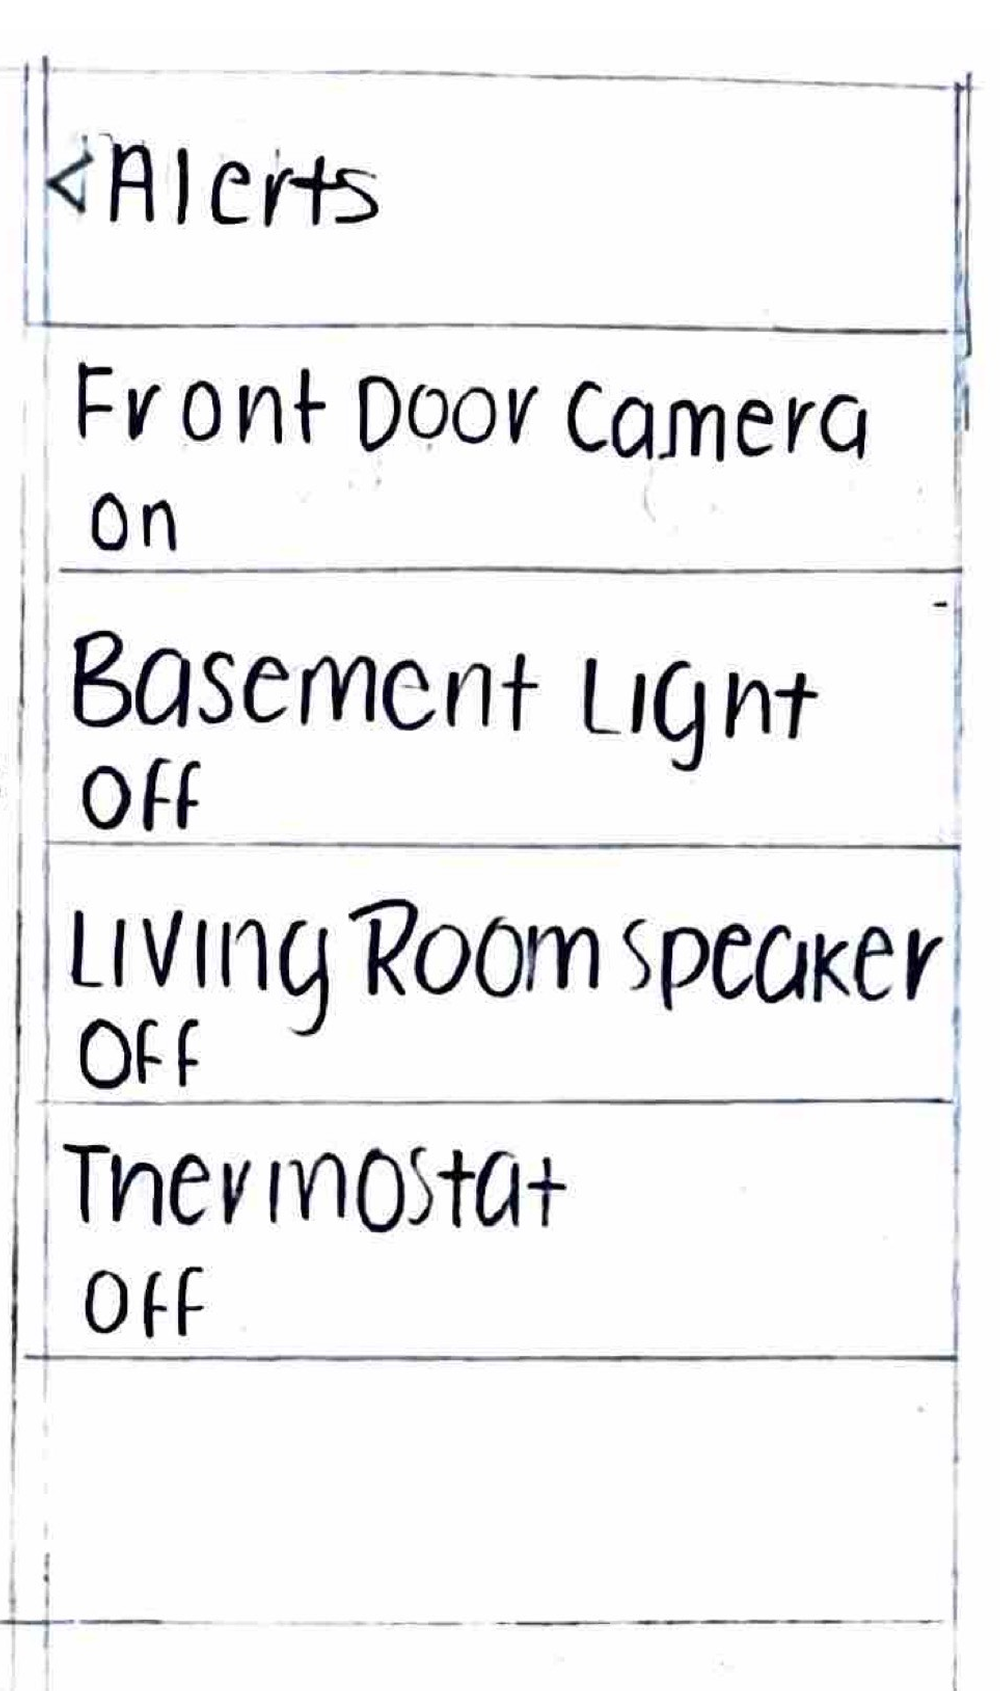 <Alerts
Front Door Camera
on
Basement Light
Off
Living Room speaker
Off
Thermostat
Off